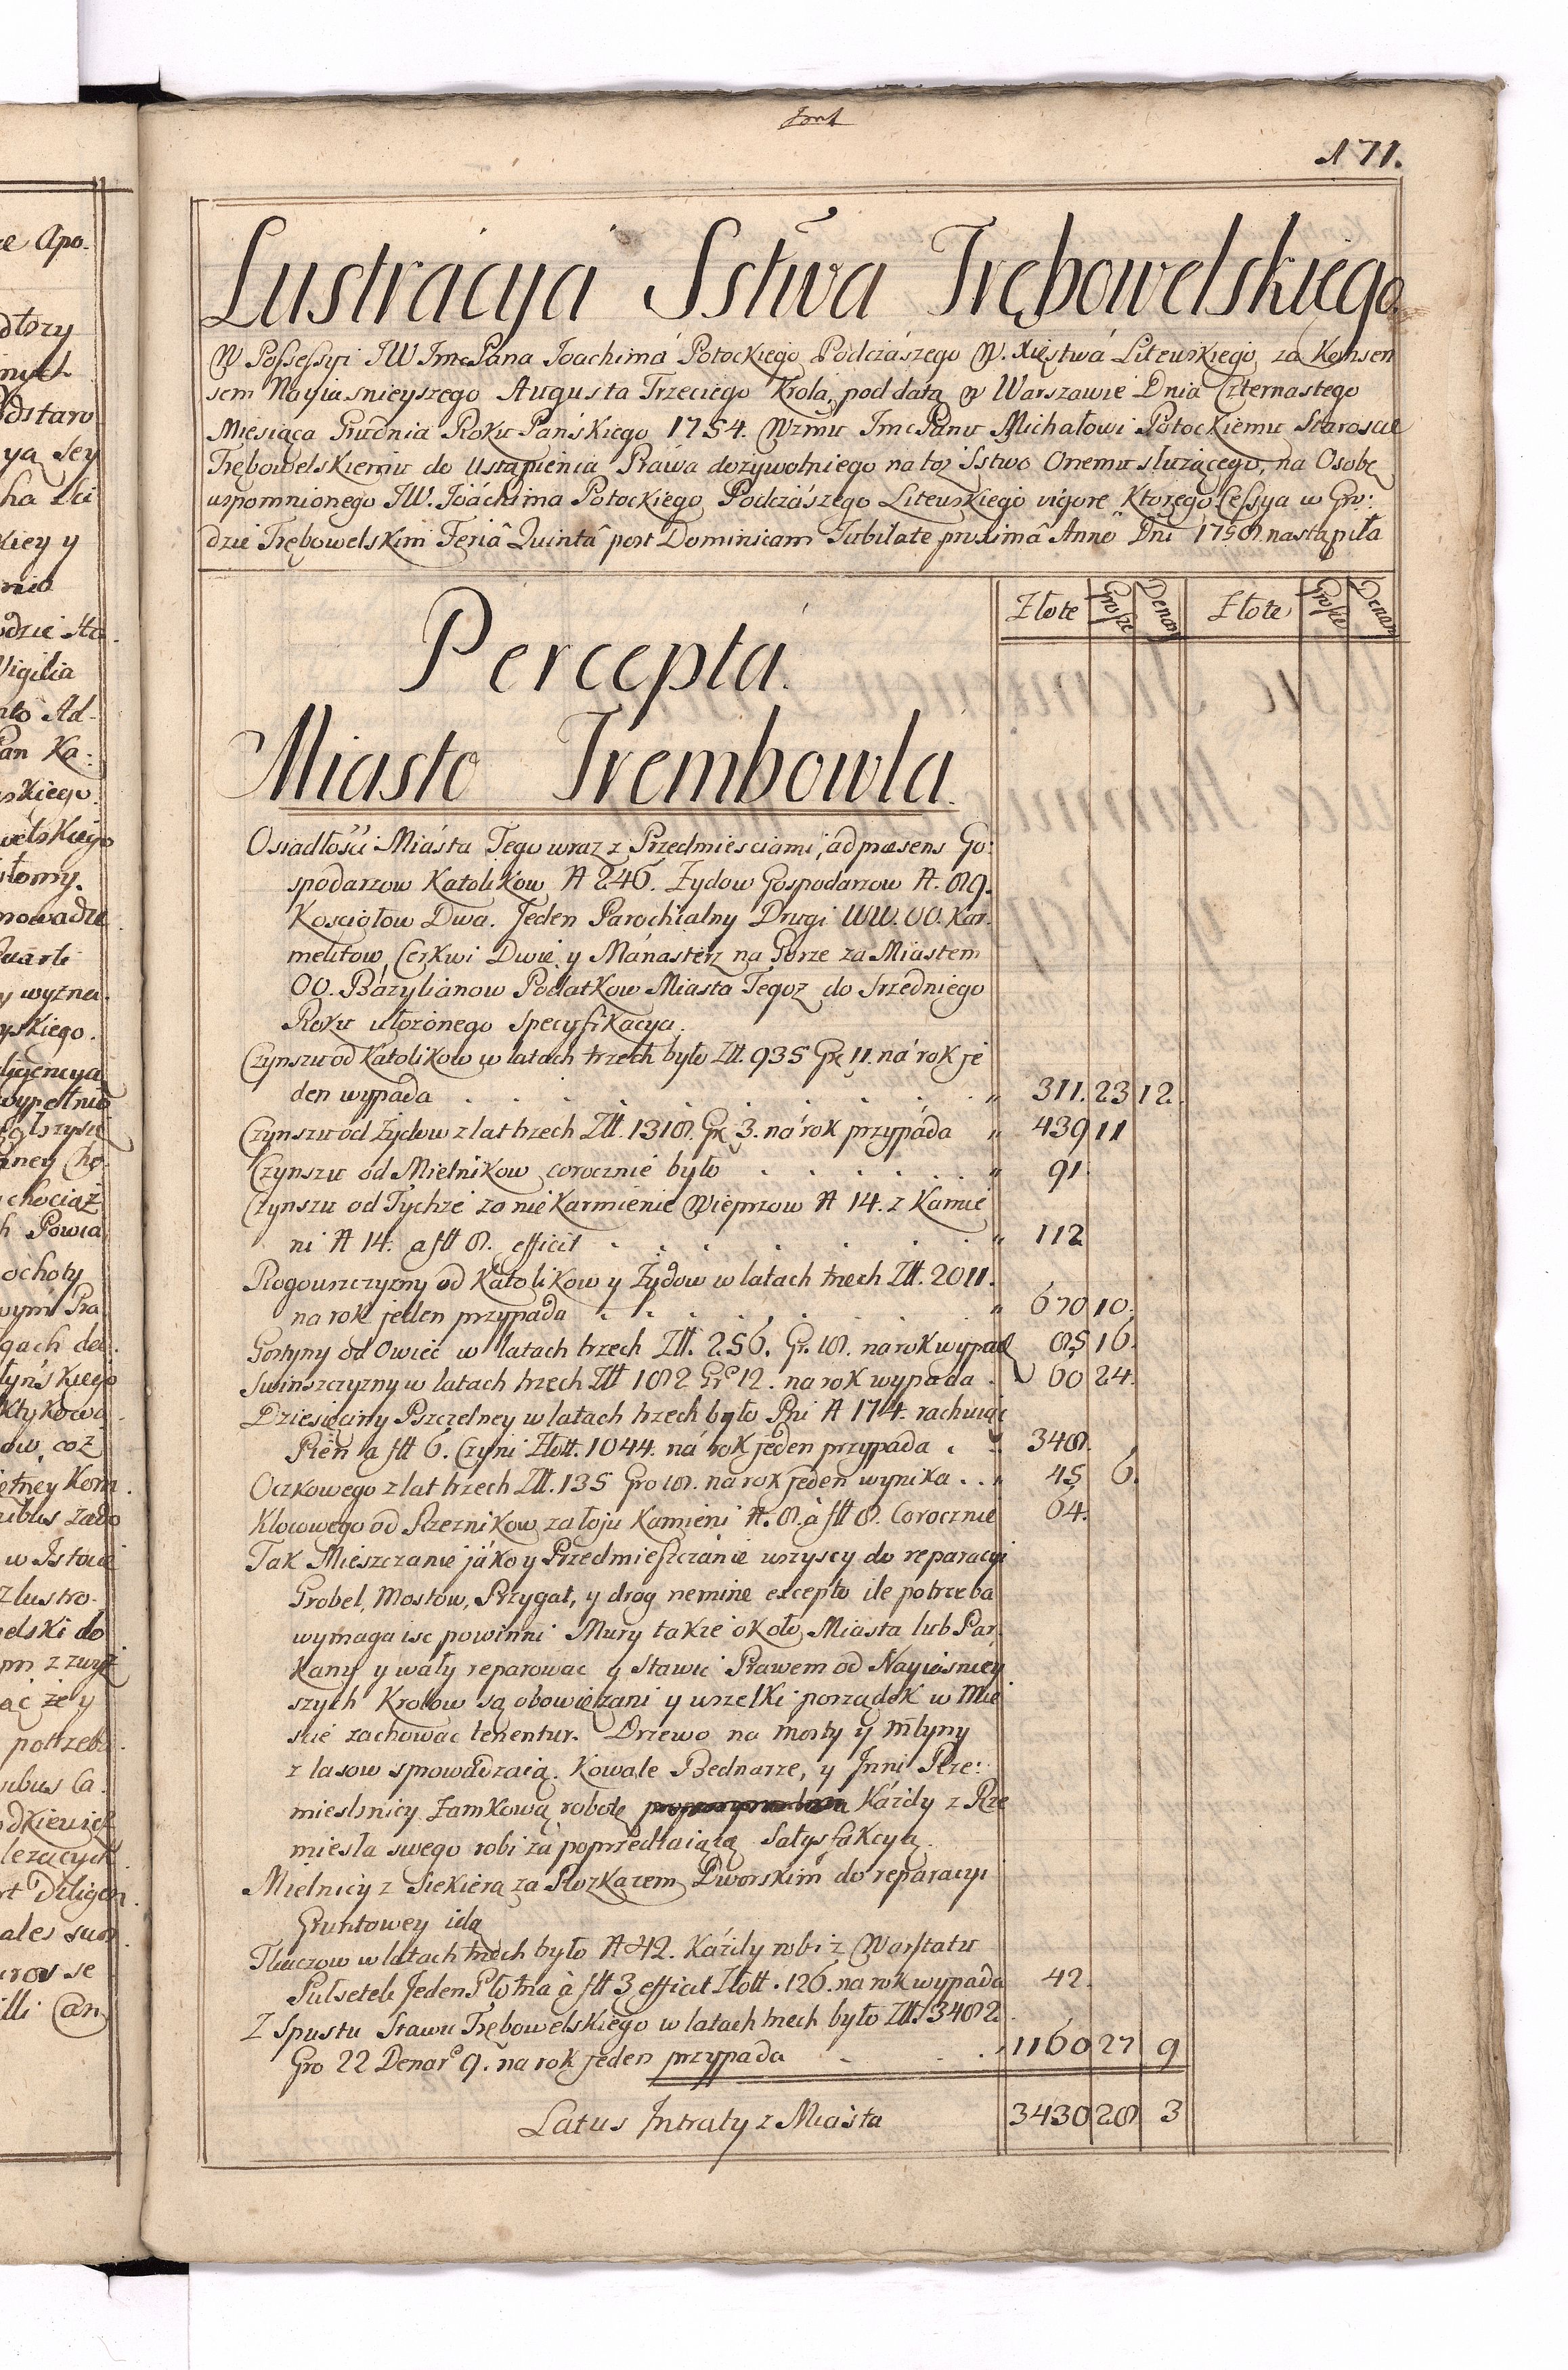 171.
Lustracyia Sstwa Trębowelskiego
W Possessyi JW JmcPana Joachima Potockiego Podczászego W. Xięstwá Litewskiego, za Konsen
sem Nayiasnieyszego Augusta Trzeciego Krola, pod datą w Warszawie Dnia Czternastego
Miesiąca Grudnia Roku Pańskiego 1754. Wzmu JmcPanu Michałowi Potockiemu Staroscie
Trębowelskiemu do Ustąpienia Práwa dożywotniego na toż Sstwo Onemu służącego, na Osobę
wspomnionego JW. Joáchima Potockiego Podczászego Litewskiego vigore Ktorego Cessya w Gro:
dzie Trębowelskim Feriâ Quintâ post Dominicam Jubilate proximâ Anno Dni 1758. nastąpiła
Złote Grosze Denar Złote Grosze Denar
Percepta.
Miasto Trembowla.
Osiadłości Miásta Tego wraz z Przedmiesciami, ad præsens Go:
spodarzow Katolikow N 246. Zydow Gospodarzow N. 89.
Kosciołow Dwa. Jeden Parochialny Drugi WW. OO. Kar:
melitow, Cerkwi Dwie y Mánasterz na Gorze za Miastem
OO. Bázylianow Podatkow Miasta Tegoż do Srzedniego
Roku ułożonego Specyfikacya.
Czynszu od Katolikow w latach trzech było Złł. 935 Gr 11. ná rok je
den wypada 311. 23 12.
Czynszu od Zydow z lat trzech Złł. 1318. Gr 3. ná rok przypáda 439 11
Czynszu od Mielnikow corocznie było 91.
Czynszu od Tychże za nie Karmienie Wieprzow N 14. z Kamie
ni N 14. a fłł 8. efficit 112
Rogowszczyzny od Katolikow y Zydow w latach trzech Złł. 2011.
na rok jeden przypada 670 10.
Gostyny od Owiec w latach trzech Złł. 256. Gr. 18. na rok wypad 85 16.
Swinszczyzny w latach trzech Złł 182 Gr 12. na rok wypada 60 24.
Dziesięciny Pszczelney w latach trzech było Pni N 174. rachuiąc
Pień a fłł 6. Czyni Złott. 1044. ná rok jeden przypada 348.
Oczkowego z lat trzech Złł. 135 Gro 18. na rok jeden wynika 45 6.
Klocowego od Rzeznikow za łoju Kamieni N. 8. à fłł 8. Corocznie 64.
Tak Mieszczanie jáko y Przedmieszczánie wszyscy do reparacyi
Grobel, Mostow, Przygat, y drog nemine excepto ile potrzeba
wymaga isc powinni Mury także około Miasta lub Par
kany y wały reparowac y Stawić Prawem od Nayiásniey
szych Krolow są obowiązani y wszelki porządek w Mie
scie zachować tenentur. Drzewo na mosty y młyny
z lasow sprowadzaią. Kowale Bednarze, y Jnni Rze:
mieslnicy Zamkową robotę Káżdy z Rze
miesła swego robi zá poprzedzaiącą Satysfakcyą.
Mielnicy z Siekierą za Rozkazem Dworskim do reparacyi
Gruntowey idą
Tkaczow w latach trzech było N 42. Káżdy robi z Warstatu
Pułsetek Jeden Płotna à fłł 3 efficit Złott. 126. na rok wypada 42.
Z Spustu Stawu Trębowelskiego w latach trzech było Złł 3482.
Gro 22 Denar 9. na rok jeden przypada 1160 27 9
Latus Jntraty z Miásta 3430 28 3